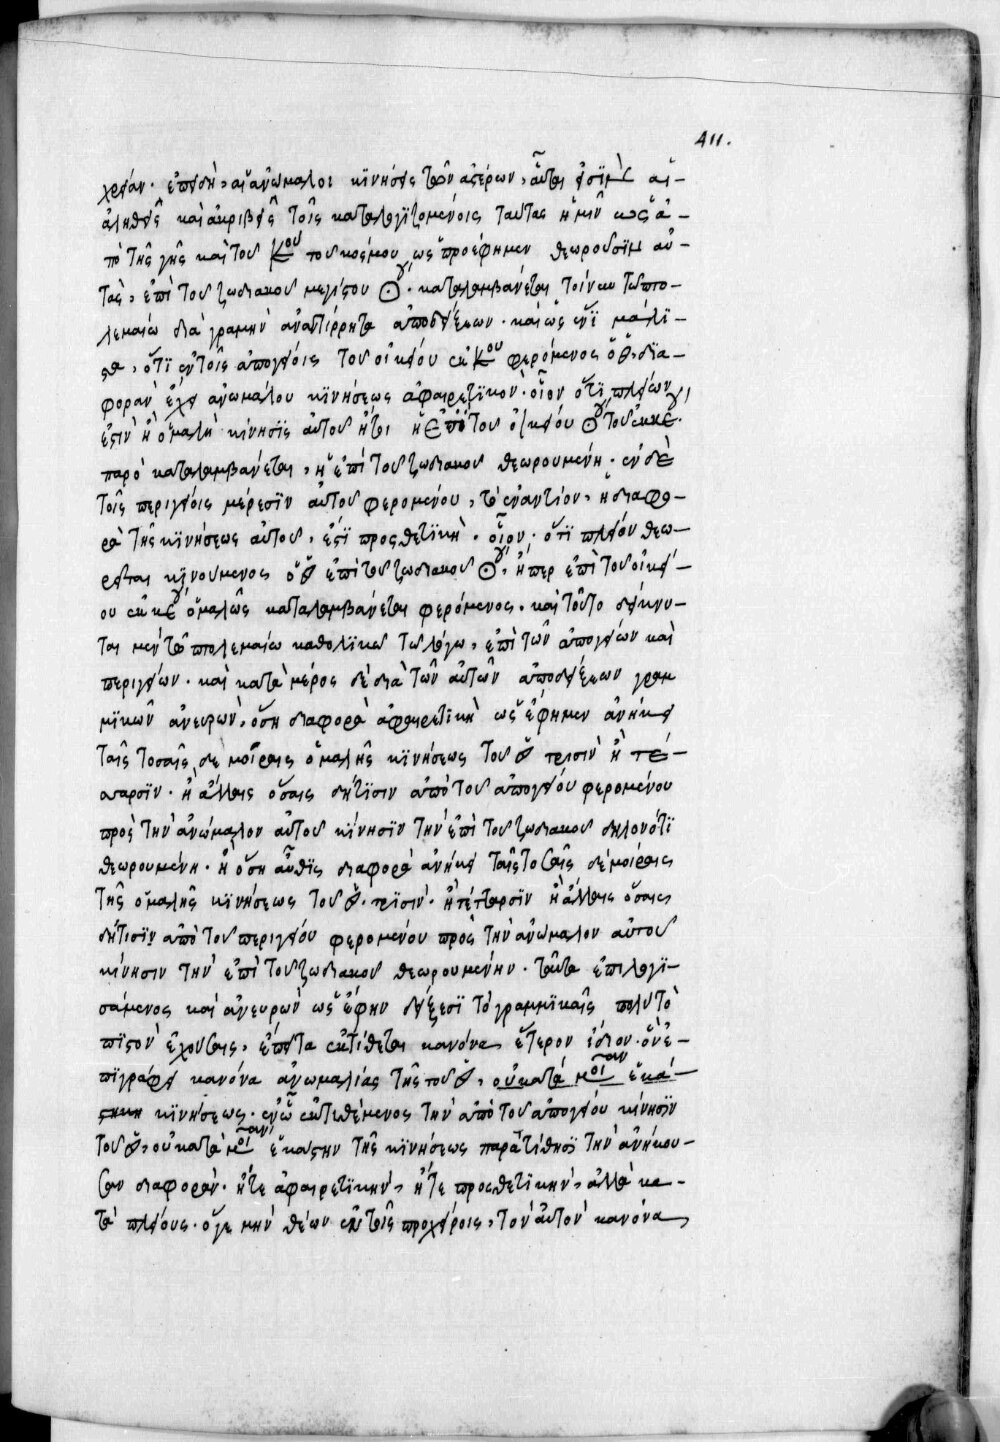 411.
χρείαν· ἐπειδὴ, αἱ ἀνώμαλοι κϊνήσεις τῶν ἀστέρων, αὗται εἰσὶν αἱ
ἀληθεῖς καὶ ἀκριβεῖς τοῖς καταλογϊζομένοις ταύτας ἡμῖν ὡς ἀ-
πὸ τῆς γῆς καὶ τοῦ κου τοῦ κόσμου, ὡς προέφημεν θεωροῦσϊν αὐ-
τὰς, ἐπὶ τοῦ ζωδιακοῦ μεγίστου ☉· καταλαμβάνεται τοίνυν τῶ πτο-
λεμαίω διὰ γραμῆν ἀναντιρρήτα ἀποδείξεων· καὶ ὡς ἔνϊ μάλϊ-
στα, ὅτϊ ἐν τοῖς ἀπογείοις τοῦ οἰκείου ἐκκου φερόμενος ὁ , δϊα-
φορὰν ἔχει ἀνωμάλου κϊνήσεως ἀφαιρετϊκὸν· οἷον ὅτϊ πλείων
ἐστὶν ἡ ὁμαλὴ κίνησϊς αὐτοῦ ἤτοι ἡ ἐπὶ τοῦ οἰκείου ☉ τοῦ ἐκκε·
παρὸ καταλαμβάνεται, ἡ ἐπὶ τοῦ ζωδιακοῦ θεωρουμένη· ἐν δὲ
τοῖς περιγείοις μέρεσϊν αὐτοῦ φερομένου, τὸ ἐναντίον, ἡ διαφο-
ρὰ τῆς κϊνήσεως αὐτοῦ, ἐστὶ προσθετϊκὴ· οἷον· ὅτϊ πλεῖον θεω-
ρεῖται κϊνούμενος ὁ ἐπὶ τοῦ ζωδιακοῦ ☉, ἤπερ ἐπὶ τοῦ οἰκεί-
ου ἐκκε ὁμαλῶς καταλαμβάνεται φερόμενος· καὶ τοῦτο δείκνυ-
ται μὲν τῶ πτολεμαίω καθολϊκῶ τῶ λόγω, ἐπὶ τῶν ἀπογείων καὶ
περιγείων· καὶ κατὰ μέρος δὲ διὰ τῶν αὐτῶν ἀποδείξεων γραμ
μϊκῶν ἀνευρὼν, ὅση διαφορὰ ἀφαιρετϊκὴ ὡς ἔφημεν ἀνήκει
ταῖς τοσαῖς δὲ μοίραις ὁμαλῆς κϊνήσεως τοῦ τρισὶν ἢ τέ-
σαρσϊν· ἢ ἄλλαις ὅσαις δήτϊσιν ἀπὸ τοῦ ἀπογείου φερομένου
πρὸς τὴν ἀνώμαλον αὐτοῦ κίνησϊν τὴν ἐπὶ τοῦ ζωδιακοῦ δηλονότϊ
θεωρουμένη· ἢ ὅση αὖθϊς διαφορὰ ἀνήκει ταῖς τοσαῖς δὲ μοίραις
τῆς ὁμαλῆς κϊνήσεως τοῦ · τρϊσὶν· ἢ τέτταρσϊν ἢ ἄλλαις ὅσαις
δήτισϊν ἀπὸ τοῦ περιγείου φερομένου πρὸς τὴν ἀνώμαλον αὐτοῦ
κίνησιν τὴν ἐπὶ τοῦ ζωδιακοῦ θεωρουμένην· ταῦτα ἐπιλογϊ-
σάμενος καὶ ἀνευρὼν ὡς ἔφην δείξεσϊ γραμμϊκαῖς πολὺ τὸ
πϊστὸν ἐχούσαις, ἔπειτα ἐκτίθεται κανόνα ἕτερον ἴδιον· ὃν ἐ-
πϊγράφει κανόνα ἀνωμαλίας τῆς τοῦ , οὐ κατὰ μοῖαν ἑκά-
στην κϊνήσεως· ἐν ᾧ ἐκτιθέμενος τὴν ἀπὸ τοῦ ἀπογείου κίνησϊν
τοῦ , οὐ κατὰ μοῖαν ἑκάστην τῆς κϊνήσεως παρατίθησϊ τὴν ἀνήκου-
σαν διαφορὰν· ἤτε ἀφαιρετϊκὴν, ἤτε προσθετϊκὴν, ἀλλὰ κα-
τὰ πλείους· ὅγε μὴν θέων ἐν τοῖς προχείροις, τὸν αὐτὸν κανόνα